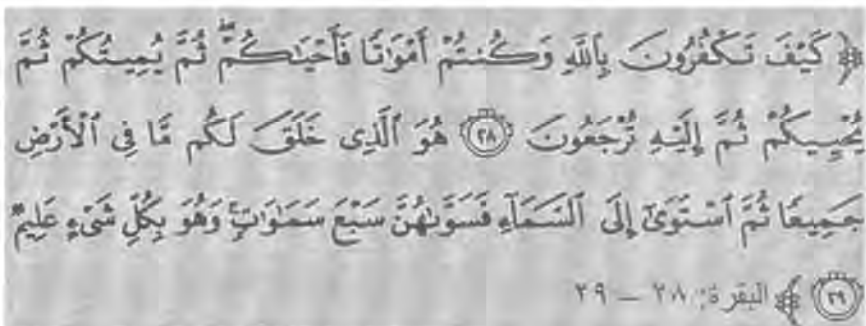 ﴿ كَيْفَ تَكْفُرُونَ بِٱللَّهِ وَكُنتُمْ أَمْوَٰتًا فَأَحْيَٰكُمْ ۖ ثُمَّ يُمِيتُكُمْ ثُمَّ
يُحْيِيكُمْ ثُمَّ إِلَيْهِ تُرْجَعُونَ ٢٨ هُوَ ٱلَّذِى خَلَقَ لَكُم مَّا فِى ٱلْأَرْضِ
جَمِيعًا ثُمَّ ٱسْتَوَىٰٓ إِلَى ٱلسَّمَآءِ فَسَوَّىٰهُنَّ سَبْعَ سَمَٰوَٰتٍ ۚ وَهُوَ بِكُلِّ شَىْءٍ عَلِيمٌ
٢٩ ﴾ البقرة: ٢٨ – ٢٩